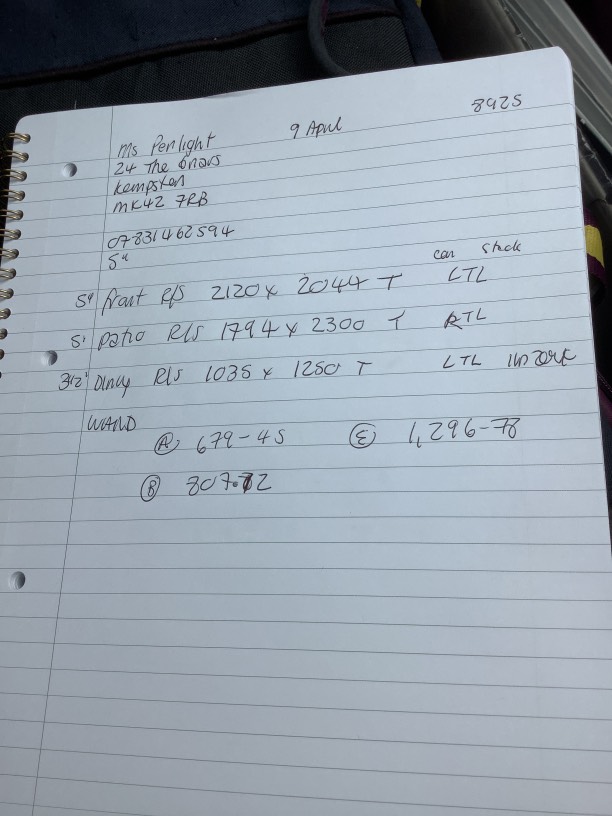 8925
Ms Penlight 9 April
24 The Briars
Kempston
MK42 7RB
07831462594
5"
can stack
5" front R/S 2120 x 2044 T LTL
5" patio R/S 1794 x 2300 T RTL
3 1/2" R/S 1035 x 1250 T LTL
WAND
(A) 679-45 (E) 1,296-78
(B) 807.72